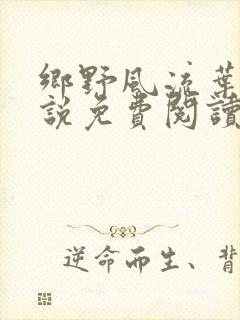 鄉野風流葉
說免費閱讀
逆命而生、背